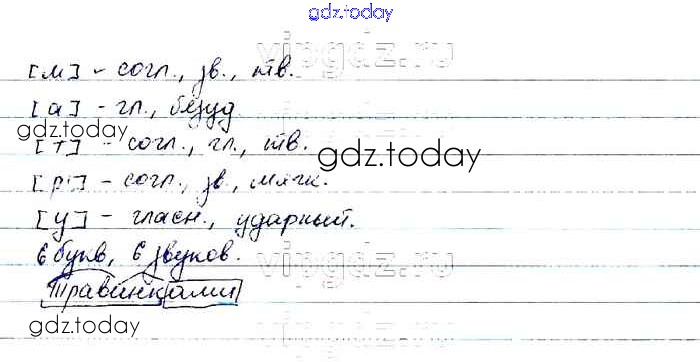 gdz.today
vipgdz.ru
[м] - согл., зв., тв.
[а] - гл., безуд.
gdz.today
[т] - согл., гл., тв.
gdz.today
[р'] - согл., зв., мягк.
[у] - гласн., ударный.
6 букв, 6 звуков.
vipgdz.ru
Травинками
gdz.today
gdz.today